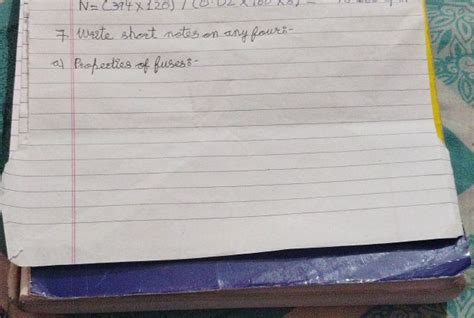 N = (394 x 120) / (0.02 x 160 x
7 Write short notes on any four:-
a) Properties of fuses:-